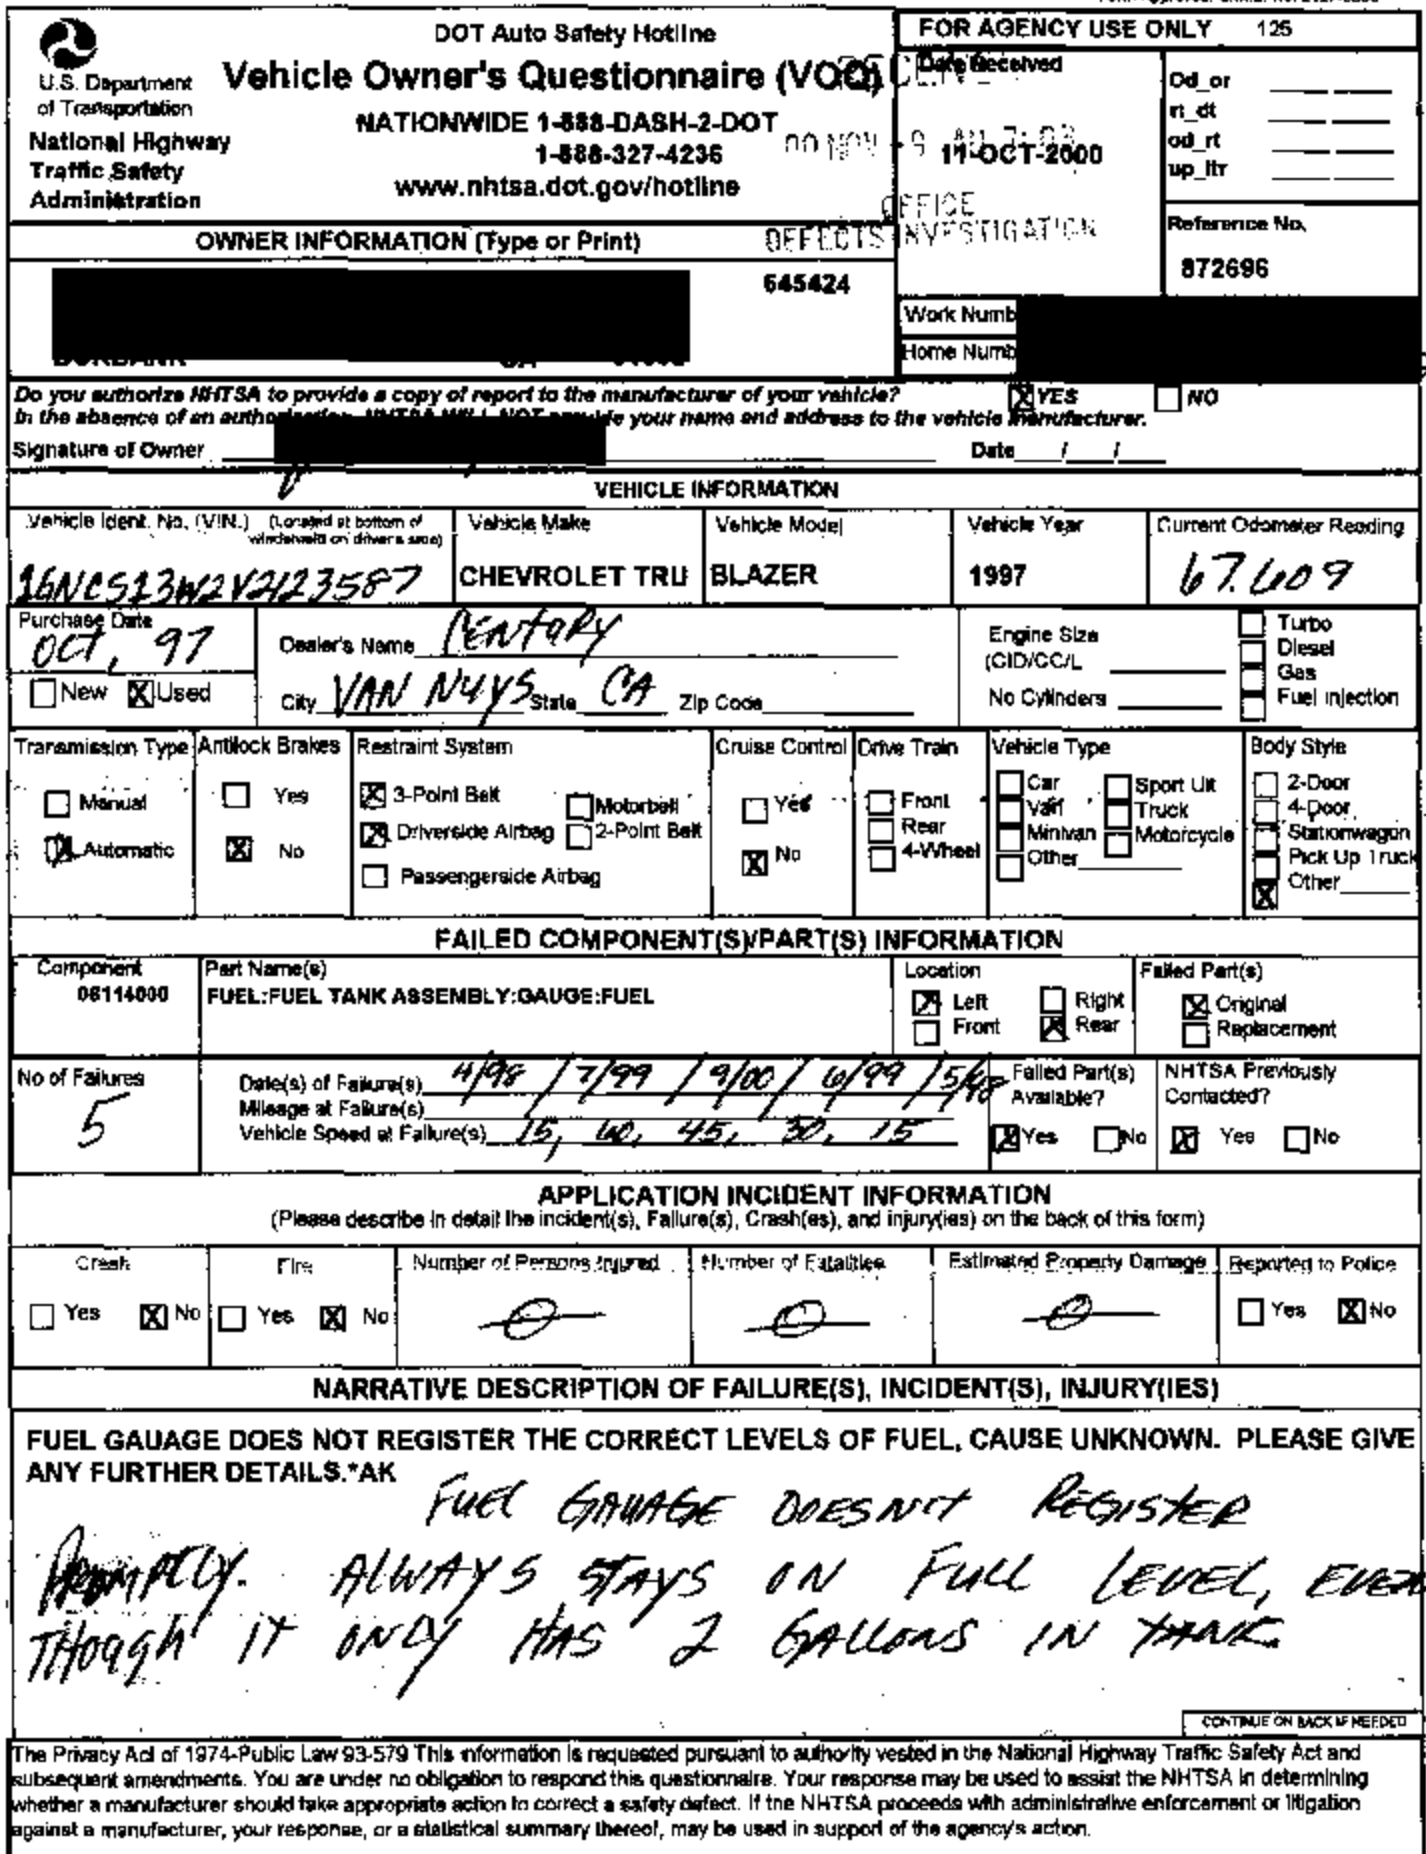 DOT Auto Safety Hotline
Vehicle Owner's Questionnaire (VOQ)
NATIONWIDE 1-888-DASH-2-DOT
1-888-327-4236
www.nhtsa.dot.gov/hotline
U.S. Department
of Transportation
National Highway
Traffic Safety
Administration
FOR AGENCY USE ONLY 125
Date Received
11-OCT-2000
OFFICE
DEFECTS INVESTIGATION
Od_or
rt_dt
od_rt
up_ltr
Reference No.
872696
OWNER INFORMATION (Type or Print)
645424
Work Numb
Home Numb
Do you authorize NHTSA to provide a copy of report to the manufacturer of your vehicle? YES NO
In the absence of an NHTSA WILL NOT your name and address to the vehicle manufacturer.
Signature of Owner Date / /
VEHICLE INFORMATION
Vehicle Ident. No. (VIN.) (Located at bottom of windshield on driver's side)
1GNCS13W2V2123587
Vehicle Make
CHEVROLET TRU
Vehicle Model
BLAZER
Vehicle Year
1997
Current Odometer Reading
67,609
Purchase Date
OCT, 97
New Used
Dealer's Name CENTARY
City VAN NUYS State CA Zip Code
Engine Size
(CID/CC/L
No Cylinders
Turbo
Diesel
Gas
Fuel Injection
Transmission Type
Manual
Automatic
Antilock Brakes
Yes
No
Restraint System
3-Point Belt
Driverside Airbag
Passengerside Airbag
Motorbelt
2-Point Belt
Cruise Control
Yes
No
Drive Train
Front
Rear
4-Wheel
Vehicle Type
Car
Van
Minivan
Other
Sport Ult
Truck
Motorcycle
Body Style
2-Door
4-Door
Stationwagon
Pick Up Truck
Other
FAILED COMPONENT(S)/PART(S) INFORMATION
Component
06114000
Part Name(s)
FUEL:FUEL TANK ASSEMBLY:GAUGE:FUEL
Location
Left Right
Front Rear
Failed Part(s)
Original
Replacement
No of Failures
5
Date(s) of Failure(s) 4/98 / 7/99 / 9/00 / 6/99 / 5/98
Mileage at Failure(s)
Vehicle Speed at Failure(s) 15, 60, 45, 30, 15
Failed Part(s)
Available?
Yes No
NHTSA Previously
Contacted?
Yes No
APPLICATION INCIDENT INFORMATION
(Please describe in detail the incident(s), Failure(s), Crash(es), and injury(ies) on the back of this form)
Crash
Yes No
Fire
Yes No
Number of Persons Injured
0
Number of Fatalities
0
Estimated Property Damage
0
Reported to Police
Yes No
NARRATIVE DESCRIPTION OF FAILURE(S), INCIDENT(S), INJURY(IES)
FUEL GAUAGE DOES NOT REGISTER THE CORRECT LEVELS OF FUEL, CAUSE UNKNOWN. PLEASE GIVE
ANY FURTHER DETAILS.*AK
FUEL GAUAGE DOESN'T REGISTER
PROMPTLY. ALWAYS STAYS ON FULL LEVEL, EVEN
THOUGH IT ONLY HAS 2 GALLONS IN TANK.
CONTINUE ON BACK IF NEEDED
The Privacy Act of 1974-Public Law 93-579 This information is requested pursuant to authority vested in the National Highway Traffic Safety Act and
subsequent amendments. You are under no obligation to respond this questionnaire. Your response may be used to assist the NHTSA in determining
whether a manufacturer should take appropriate action to correct a safety defect. If the NHTSA proceeds with administrative enforcement or litigation
against a manufacturer, your response, or a statistical summary thereof, may be used in support of the agency's action.